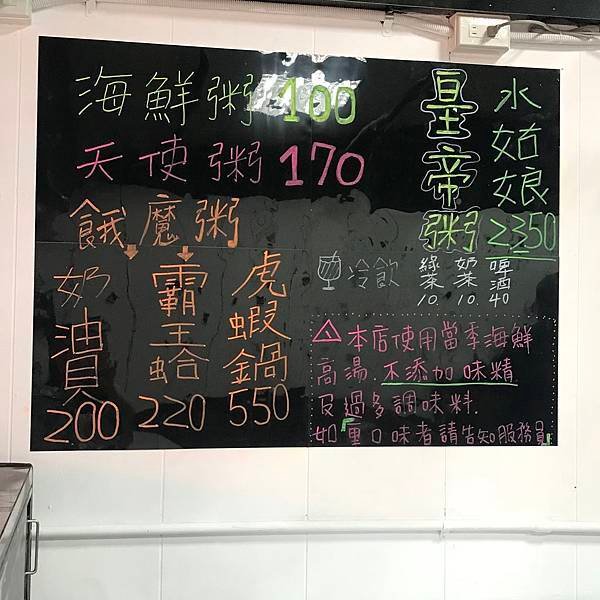 海鮮粥100
天使粥170
餓魔粥
奶油貝
200
霸王蛤
220
虎蝦鍋
550
皇帝粥
水姑娘
2350
冷飲
綠茶
10.
奶茶
10.
啤酒
40
本店使用當季海鮮
高湯.不添加味精
及過多調味料.
如重口味者請告知服務員